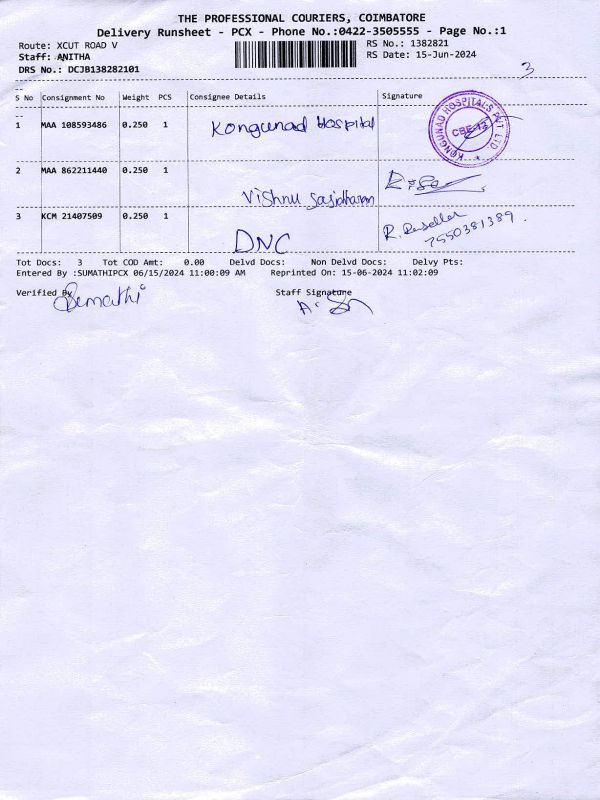 THE PROFESSIONAL COURIERS, COIMBATORE
Delivery Runsheet - PCX - Phone No.:0422-3505555 - Page No.:1
Route: XCUT ROAD V RS No.: 1382821
Staff: ANITHA RS Date: 15-Jun-2024
DRS No.: DCJB138282101 3
S No Consignment No Weight PCS Consignee Details Signature
1 MAA 108593486 0.250 1 Kongunad Hospital KONGUNAD HOSPITALS PVT. LTD. CBE-12
2 MAA 862211440 0.250 1
Vishnu Sasidharan
3 KCM 21407509 0.250 1 R.
DNC 7550381389.
Tot Docs: 3 Tot COD Amt: 0.00 Delvd Docs: Non Delvd Docs: Delvy Pts:
Entered By :SUMATHIPCX 06/15/2024 11:00:09 AM Reprinted On: 15-06-2024 11:02:09
Verified By Staff Signature
Sumathi